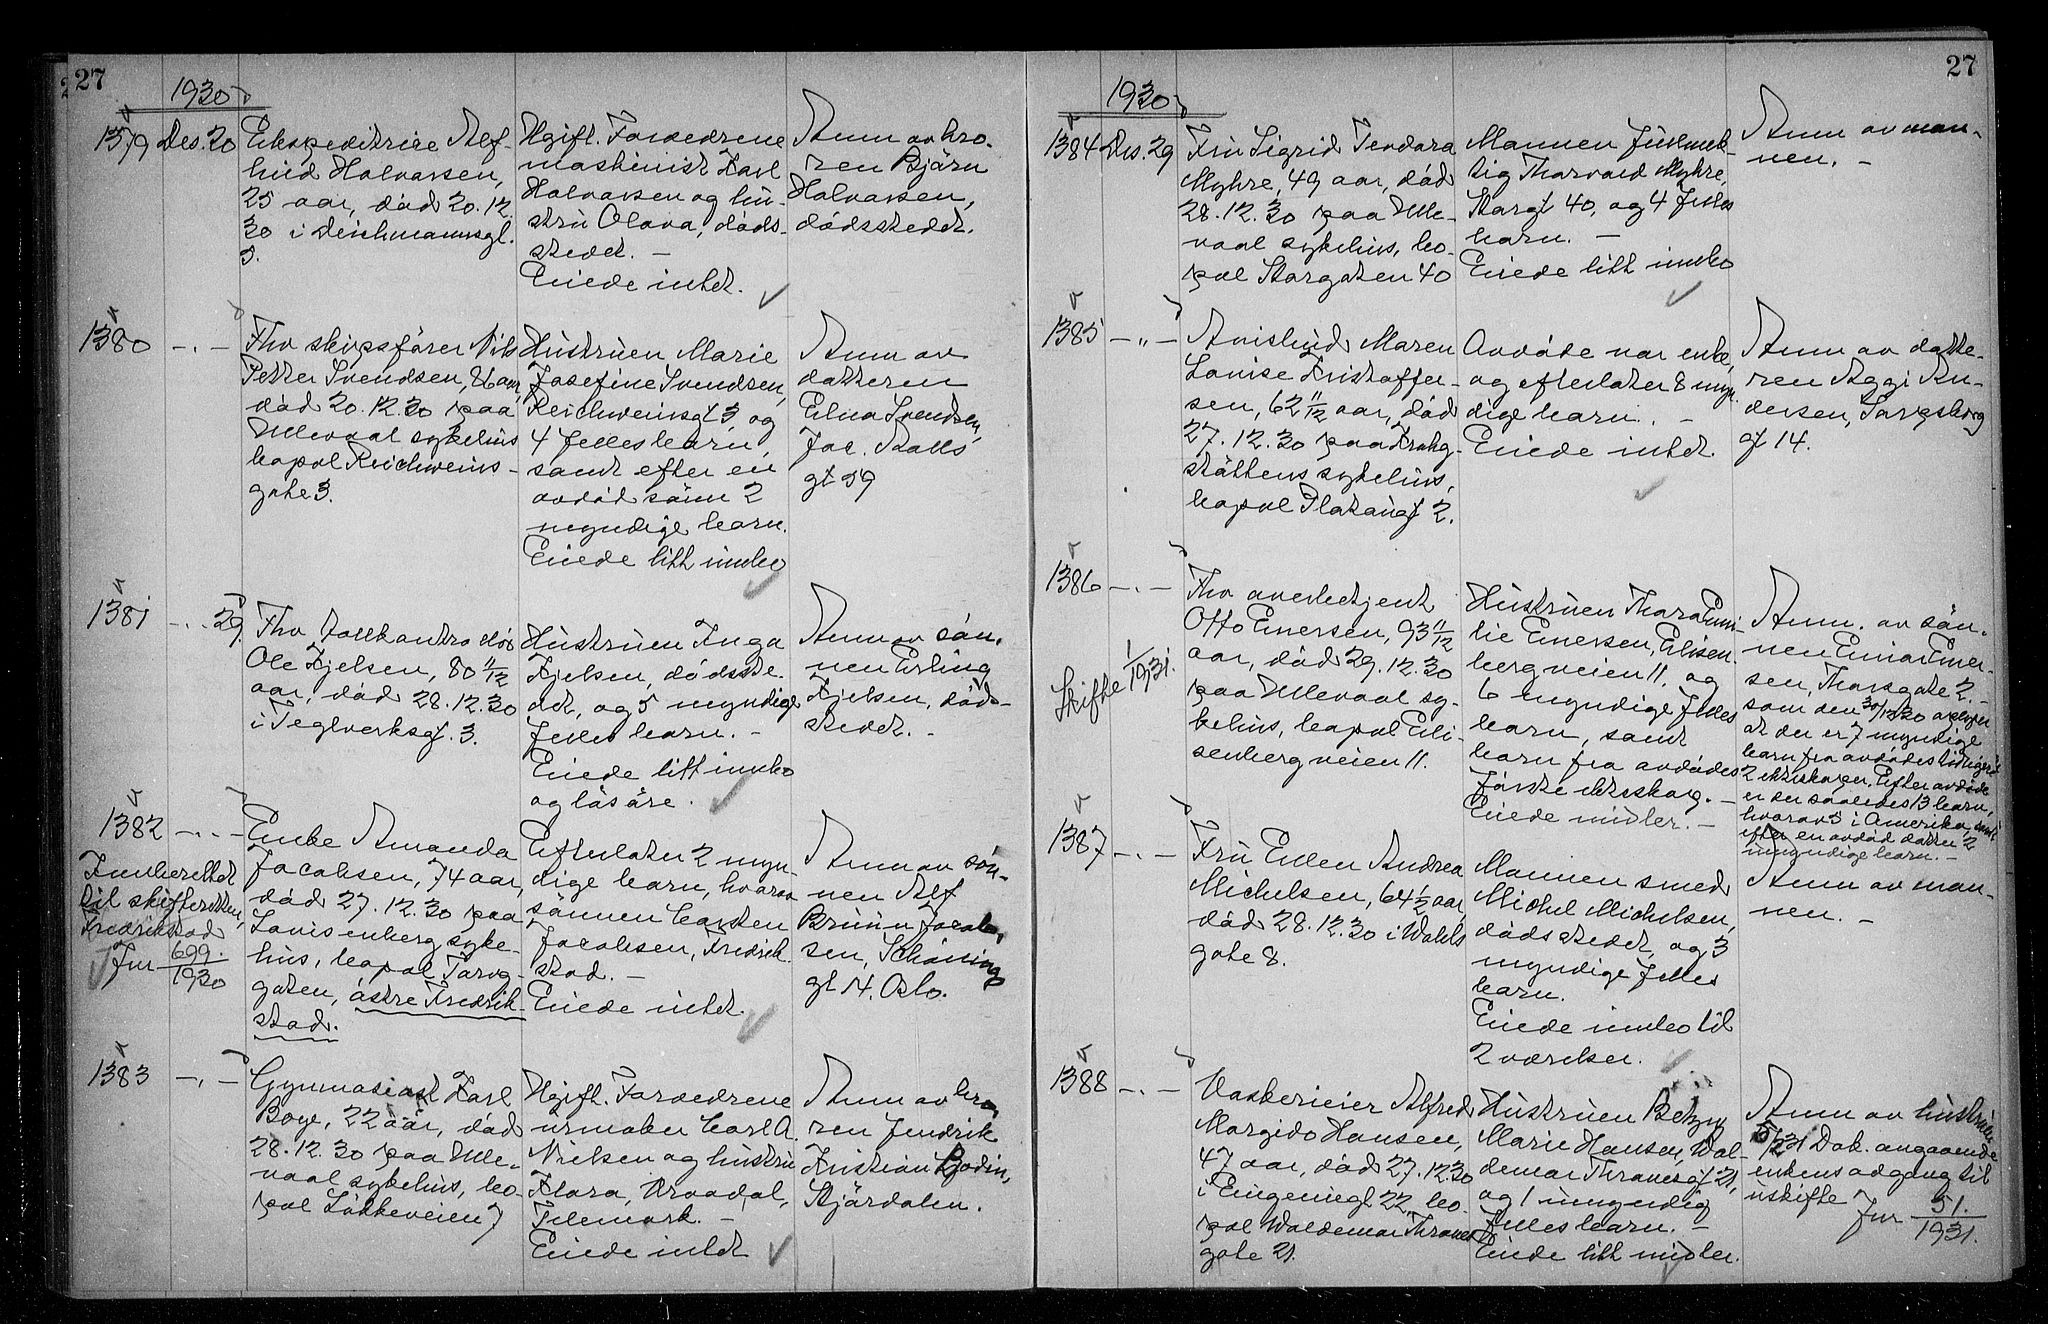 27
1930
1379 Des. 20
Ekspeditrise Alf-
hild Halvorsen,
25 aar, död 20.12.
30 i Deichmannsgt.
5.
Ugift. Forældrene
maskinist Karl
Halvorsen og hu-
stru Olava, döds-
stedet. -
Eiede intet.
Anm av bro-
ren Björn
Halvorsen,
dödsstedet.
1380 - " -
Fhv skipsförer Nils
Petter Svendsen, 86 aar,
död 20.12.30 paa
Ullevaal sykehus
bopæl Reichweins-
gate 3.
Hustruen Marie
Josefine Svendsen,
Reichweinsgt 3, og
4 felles barn,
samt efter en
avdöd sönn 2
myndige barn.
Eiede litt innbo
Anm av
datteren
Edna Svendsen,
Jac. Aalls
gt 59
1381 - " - 29.
Fhv
Ole Kjelsen, 80 1/12
aar, död 28.12.30
i Teglverksgt. 3.
Hustruen Inga
Kjelsen, dödsste-
det, og 5 myndige
felles barn. -
Eiede litt innbo
og lösöre.
Anm av sön-
nen Erling
Kjelsen, döds-
stedet. -
1382 - " -
Innberettet
til skifteretten,
Fredrikstad
Jnr 699.
1930
Enke Amanda
Jacobsen, 74 aar,
död 27.12.30 paa
Lovisenberg syke-
hus, bopæl Torvg-
gaten, östre Fredrik-
stad.
Efterlater 2 myn-
dige barn, hvorav
sönnen Carsten
Jacobsen, Fredrik-
stad. -
Eiede intet.
Anm av sön-
nen Alf
Bruun Jacob-
sen, Schönings
gt 14. Oslo.
1383 - " -
Gymnasiast Karl
Boye, 22 aar, död
28.12.30 paa Ulle-
vaal sykehus, bo-
pæl Lökkeveien 7
Ugift. Forældrene
urmaker Carl A.
Nielsen og hustru
Klara, Vraadal,
Telemark. -
Eiede intet
Anm av bro-
ren Fredrik
Kristian Bodin,
Stjördalen.
27
1930
1384 Des. 29
Fru Sigrid Teodora
Myhre, 49 aar, död
28.12.30 paa Ulle-
vaal sykehus, bo-
pæl Storgaten 40
Mannen fullmek-
tig Thorvald Myhre,
Storgt 40, og 4 felles
barn. -
Eiede litt innbo
Anm av man-
nen. -
1385 - " -
Avisbud Maren
Lovise Kristoffer-
sen, 62 11/12 aar, död
27.12.30 paa Krohg-
stöttens sykehus,
bopæl Platousgt 2.
Avdöde var enke,
og efterlater 8 myn-
dige barn. -
Eiede intet.
Anm av datte-
ren Aggi An-
dersen, Sarpsborg
gt 14.
1386 - " -
Skifte 1/1931.
Fhv overbetjent
Otto Einersen, 93 11/12
aar, död 29.12.30
paa Ullevaal sy-
kehus, bopæl Eili-
senbergveien 11.
Hustruen Thora Emi-
lie Einersen, Eilisen-
bergveien 11. og
6 myndige felles
barn, samt
barn fra avdödes
förste ekteskap. -
Eiede midler. -
Anm. av sön-
nen Einar Einer-
sen, Thorsgate 2. -
som den 30/12 30 opgir
at der er 7 myndige
barn fra avdödes tidligere
2 ekteskaper. Efter avdöde
er der saaledes 13 barn,
hvorav 5 i Amerika, samt
efter en avdöd datter 2
umyndige barn. -
1387 - " -
Fru Ellen Andrea
Michelsen, 64 1/2 aar
död 28.12.30 i Wahls
gate 8.
Mannen smed
Michel Michelsen,
dödsstedet, og 3
myndige felles
barn.
Eiede innbo til
2 værelser.
Anm av man-
nen. -
1388 - " -
Vaskerieier Alfred
Margido Hansen,
47 aar, död 27.12.30
i Eugeniegt 22, bo-
pæl Waldemar Thranes
gate 21.
Hustruen Betzy
Marie Hansen, Wal-
demar Thranesgt 21,
og 1 umyndig
felles barn. -
Eiede litt midler.
Anm av hustruen
Dok. angaaende
enkens adgang til
uskifte
Jnr 51.
1931.